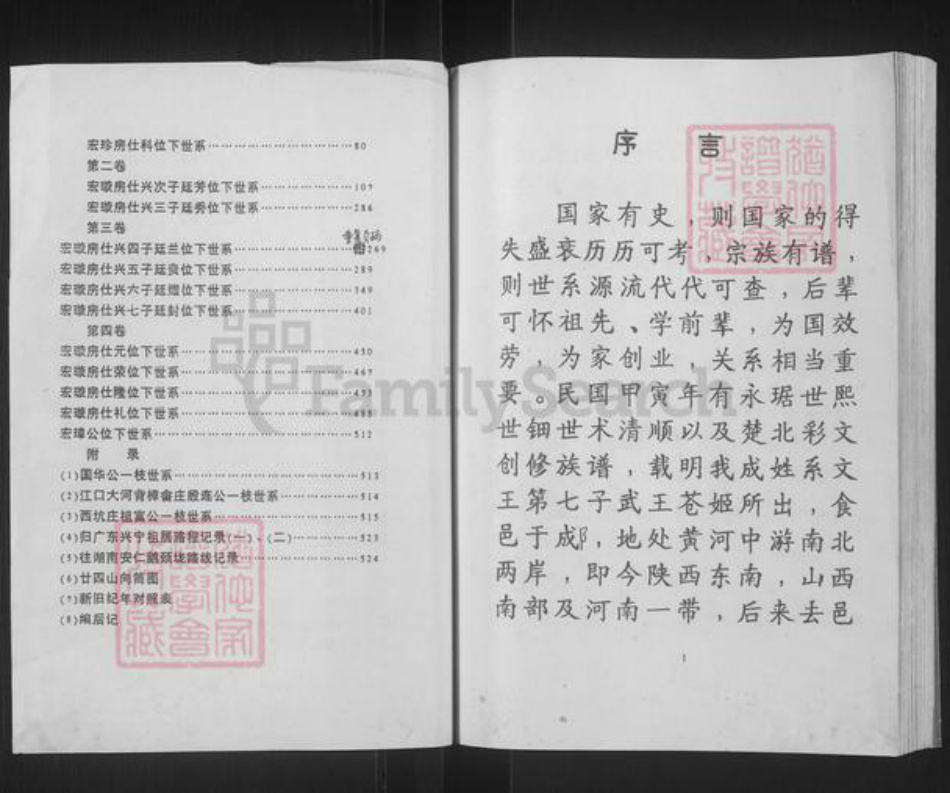 宏珍房仕科位下世系……80
第二卷
宏璇房仕兴次子廷芳位下世系……107
宏璇房仕兴三子廷秀位下世系……286
第三卷
宏璇房仕兴四子廷兰位下世系……269
宏璇房仕兴五子廷资位下世系……289
宏璇房仕兴六子廷煌位下世系……349
宏璇房仕兴七子廷封位下世系……401
第四卷
宏璇房仕元位下世系……450
宏璇房仕荣位下世系……467
宏璇房仕隆位下世系……493
宏璇房仕礼位下世系……488
宏璋公位下世系……512
附 录
(1)国华公一枝世系……513
(2)江口大河背樟畲庄殿选公一枝世系……514
(3)西坑庄祖富公一枝世系……515
(4)归广东兴宁祖居路程记录(一)、(二)……523
(5)往湖南安仁鹅颈垅路线记录……524
(6)廿四山向简图
(7)新旧纪年对照表
(8)编后记
序 言
国家有史，则国家的得
失盛衰历历可考，宗族有谱，
则世系源流代代可查，后辈
可怀祖先、学前辈，为国效
劳，为家创业，关系相当重
要。民国甲寅年有永琚世熙
世钿世术清顺以及楚北彩文
创修族谱，载明我成姓系文
王第七子武王苍姬所出，食
邑于成阝，地处黄河中游南北
两岸，即今陕西东南，山西
南部及河南一带，后来去邑
1
FamilySearch